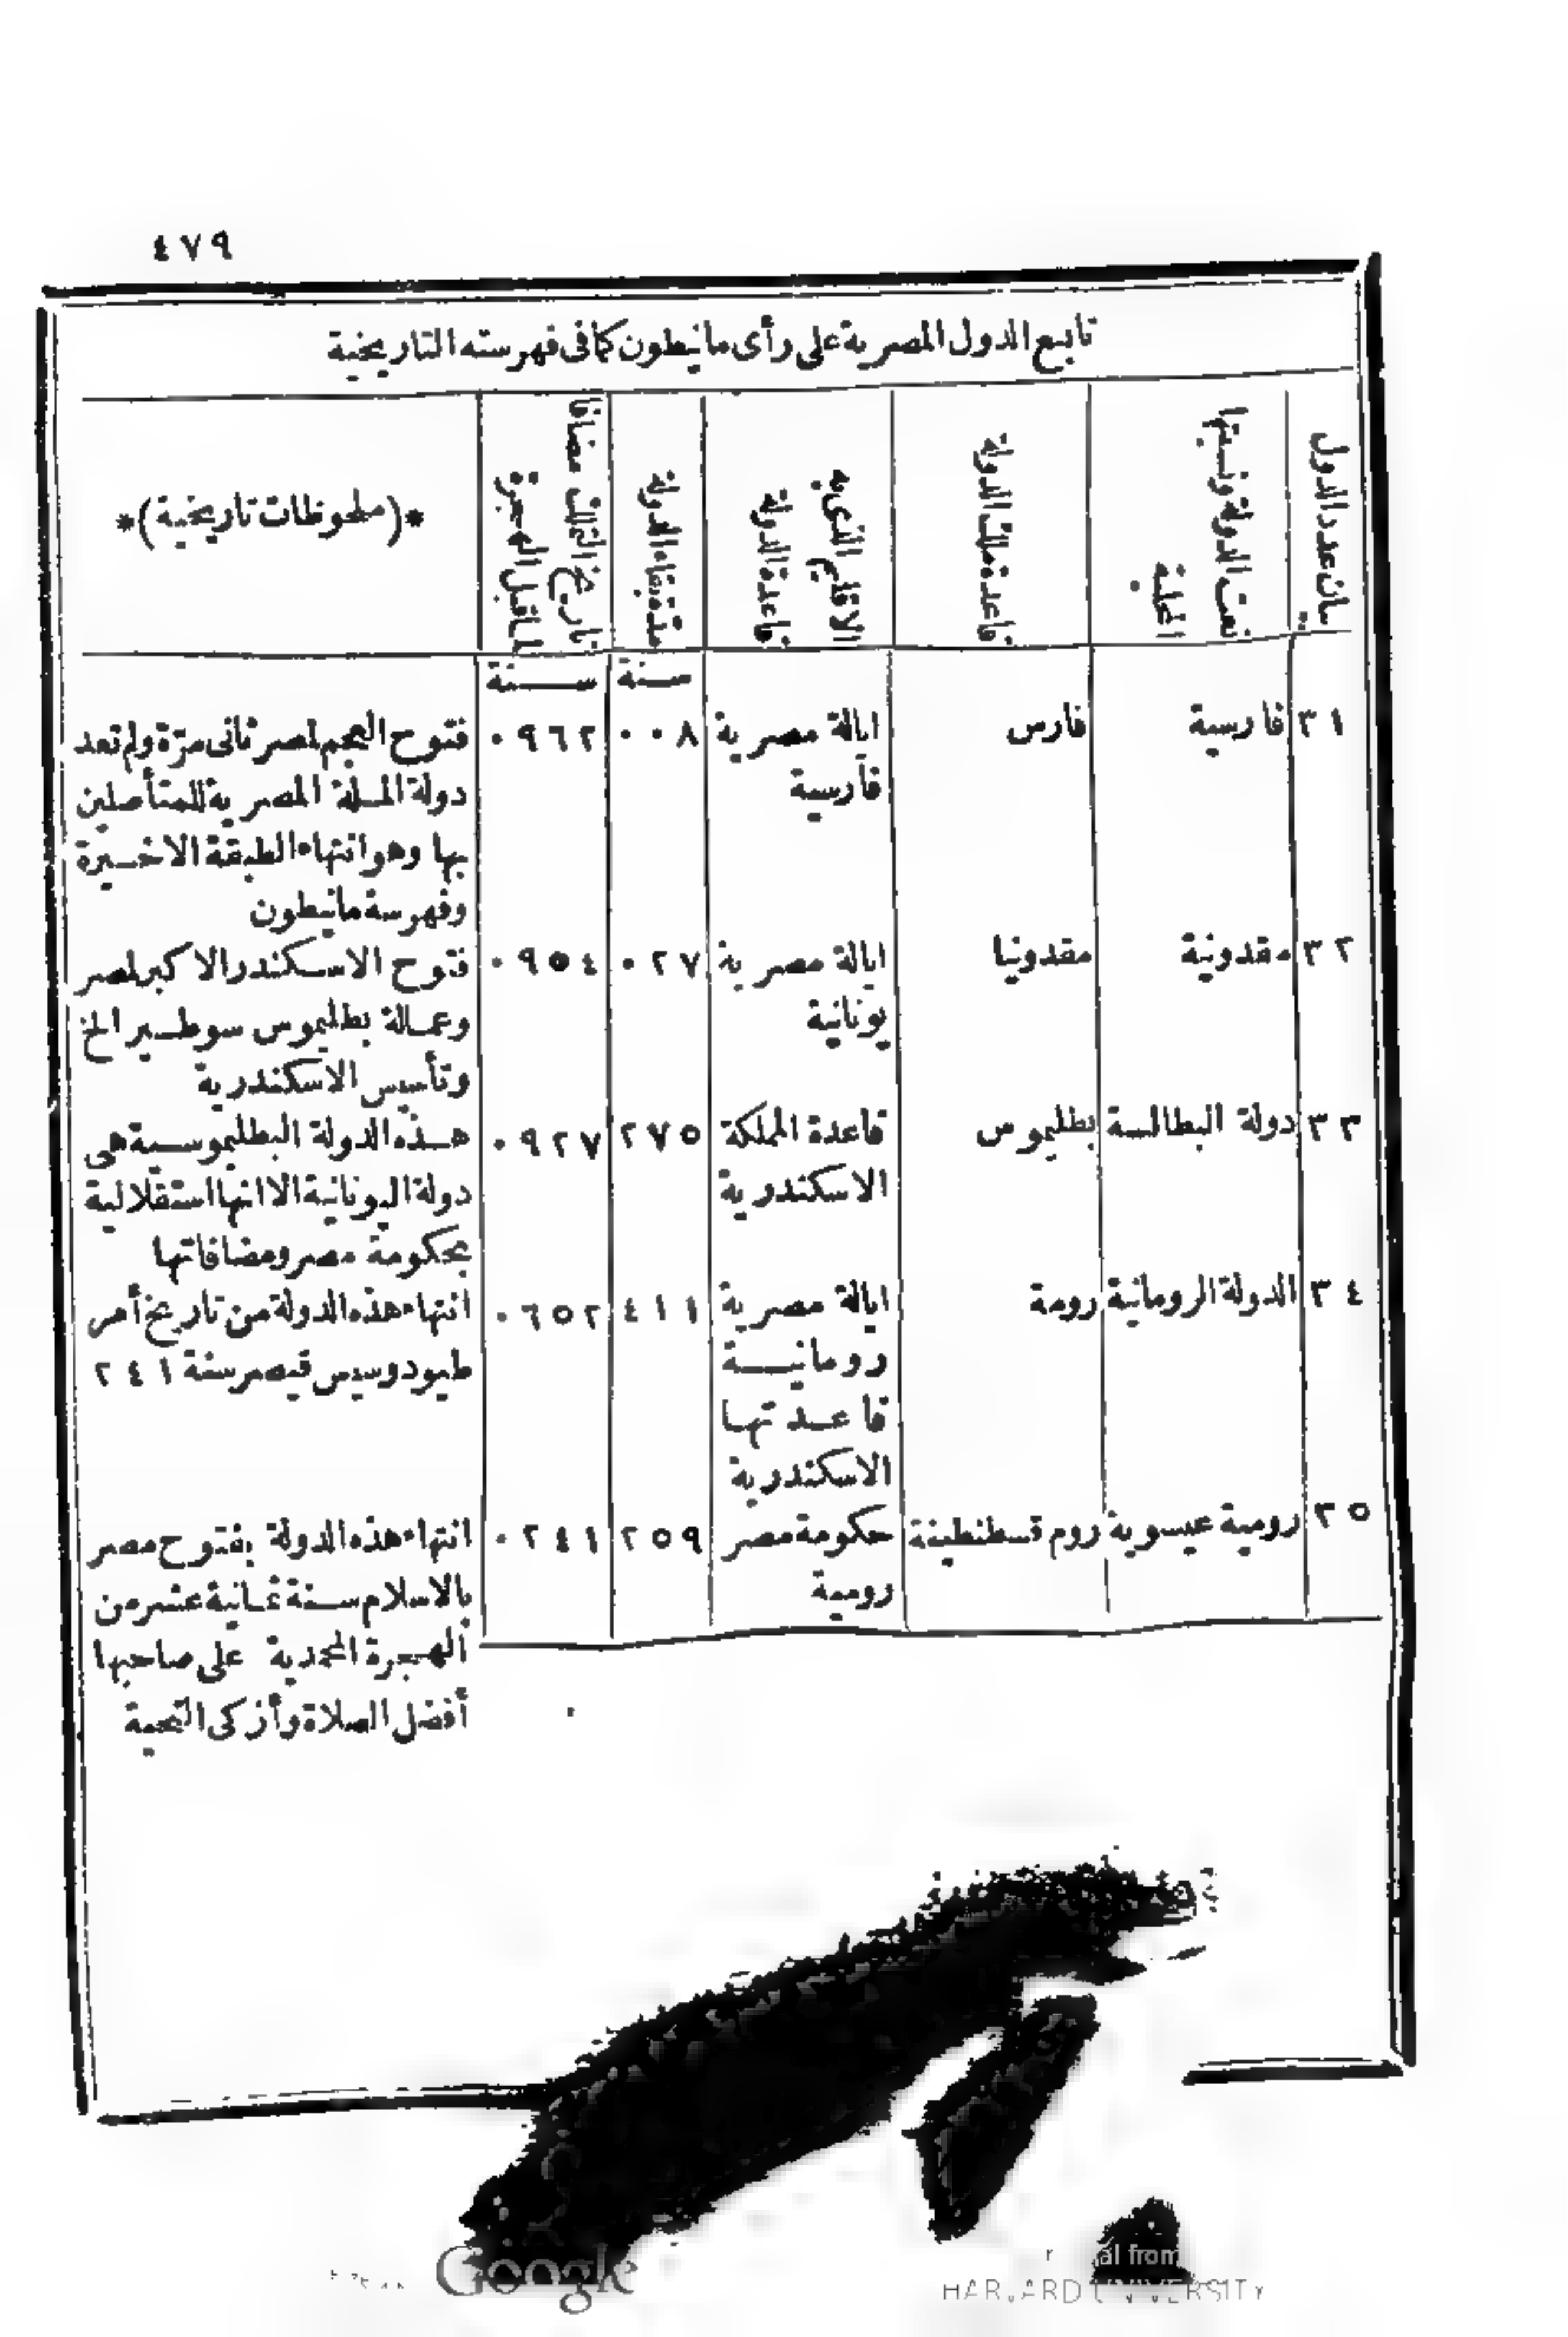 ٤٧٩
تابع الدول المصرية على رأى مانيطون كما فى فهرسته التاريخية
بيان عدد الدول
نعت الدولة ونسبتها
المحلية
قاعدة ملك الدولة
الاقليم الذى به
قاعدة الدولة
مدة بقاء الدولة
تاريخ التملك مضافا
لما قبل الهجرة
*(ملحوظات تاريخية)*
سنة
سنة
٣١ فارسية فارس ايالة مصرية ٠٠٨ ٠٩٦٢ فتوح العجم لمصر ثانى مرّة ولم تعد
فارسية دولة الملة المصرية للمتأصلين
بها وهو انتهاء الطبقة الاخيرة
وفهرسة مانيطون
٣٢ مقدونية مقدونيا ايالة مصرية ٠٢٧ ٠٩٥٤ فتوح الاسكندر الاكبر لمصر
يونانية وعمالة بطليموس سوطير الخ
وتأسيس الاسكندرية
٣٣ دولة البطالسة بطليموس قاعدة المملكة ٢٧٥ ٠٩٢٧ هذه الدولة البطليموسية هى
الاسكندرية دولة اليونانية الا انها استقلالية
بحكومة مصر ومضافاتها
٣٤ الدولة الرومانية رومة ايالة مصرية ٤١١ ٠٦٥٢ انتهاء هذه الدولة من تاريخ أمر
رومانية طيودوسيس قيصر سنة ٢٤١
قاعدتها
الاسكندرية
٣٥ رومية عيسوية روم قسطنطينة حكومة مصر ٢٥٩ ٠٢٤١ انتهاء هذه الدولة بفتوح مصر
رومية بالاسلام سنة ثمانية عشر من
الهجرة المحمدية على صاحبها
أفضل الصلاة وأزكى التحية
Google
al from
HARVARD UNIVERSITY